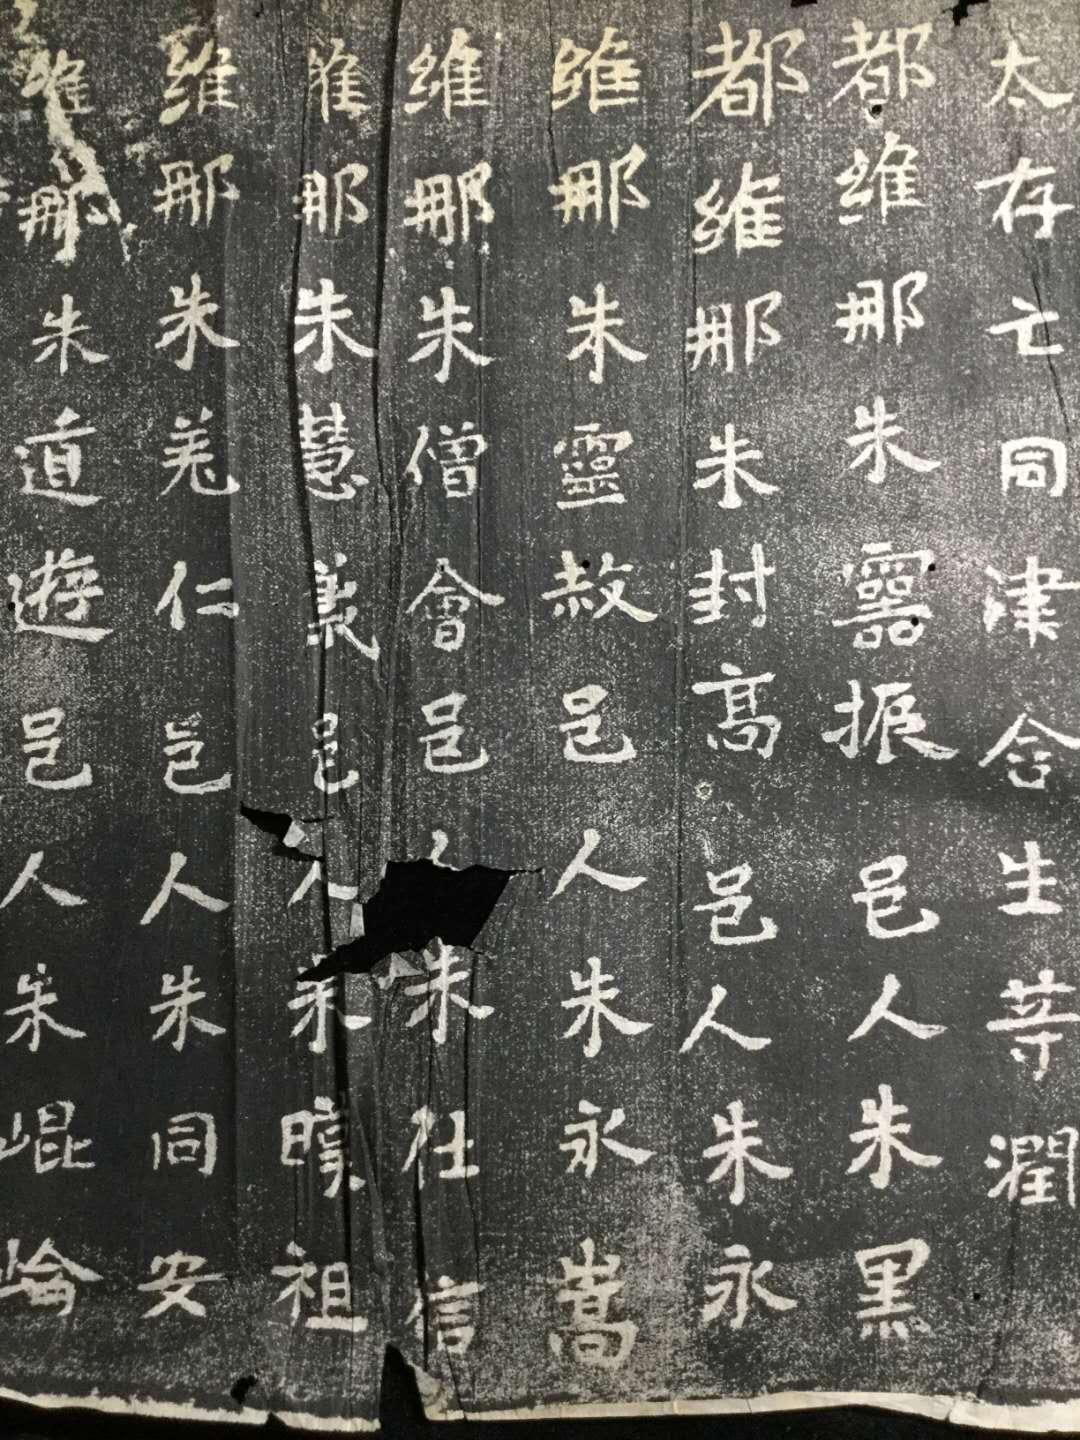 太存亡同津含生等潤
都維那朱靈振邑人朱黑
都維那朱封高邑人朱永
維那朱靈赦邑人朱永嵩
維那朱僧會邑人朱仕信
維那朱慧義邑人朱暎祖
維那朱羌仁邑人朱同安
維那朱道遊邑人朱崐崘